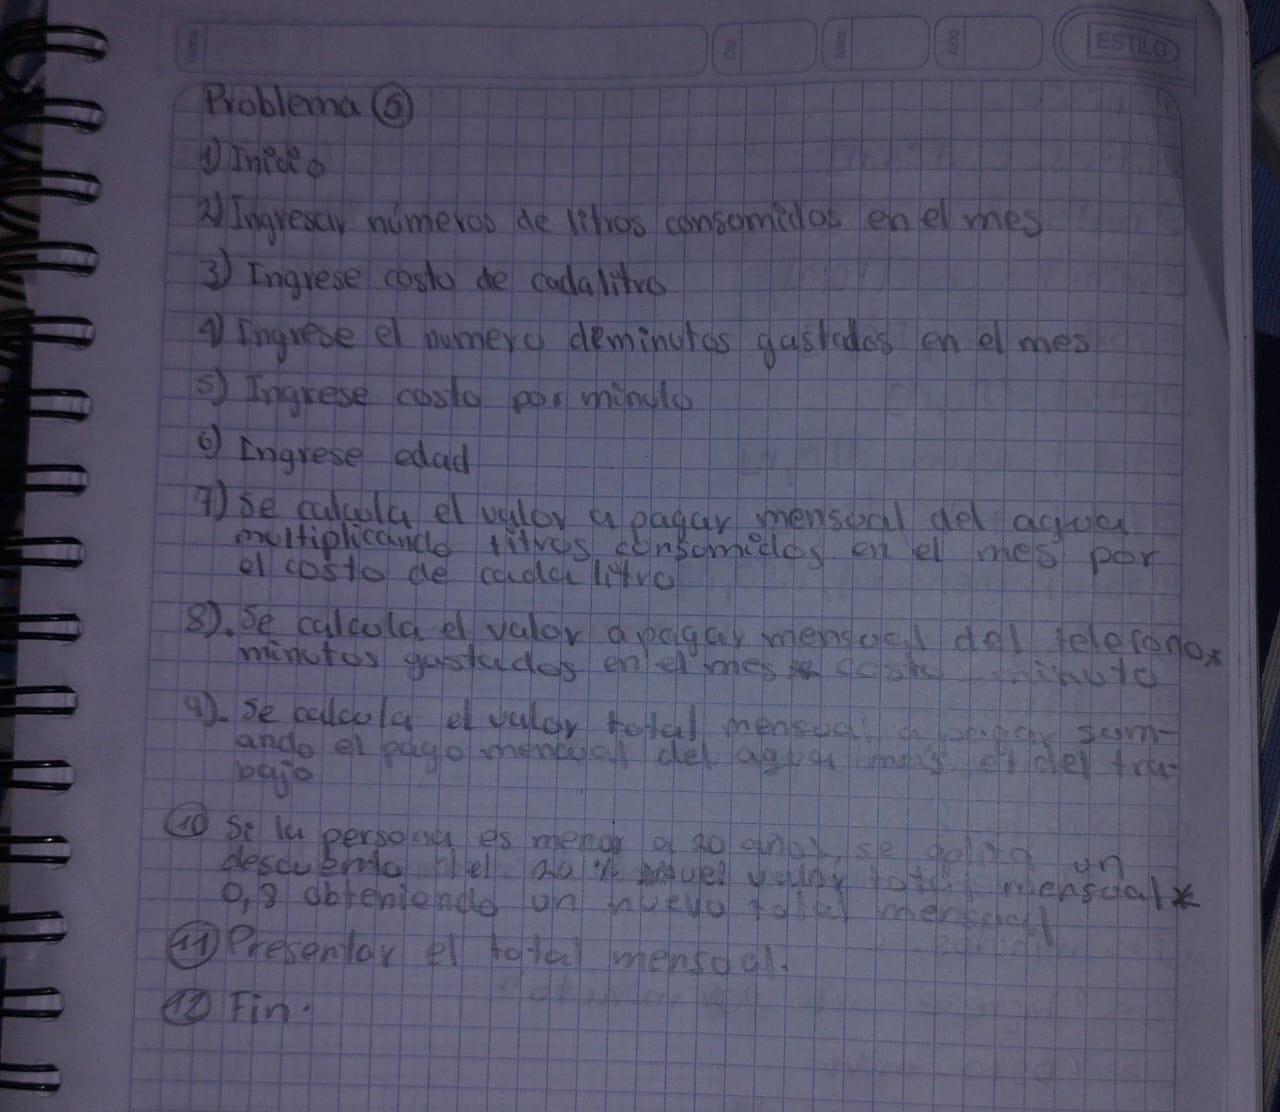 Tema
Día
Mes
Año
ESTILO
Problema 5
1) Inicio
2) Ingresar números de litros consomidos en el mes
3) Ingrese costo de cada litro
4) Ingrese el numero de minutos gastados en el mes
5) Ingrese costo por minuto
6) Ingrese edad
7) Se calcula el valor a pagar mensoal del agua
moltiplicando litros consomidos en el mes por
el costo de cada litro
8). Se calcola el valor a pagar mensual del telefono x
minutos gastados en el mes costo minuto
9). Se calcola el valor total mensual a pagar sum-
ando el pago mensual del agua más el del tra-
bajo
10 Si la persona es menor a 20 años, se aplica un
descuento del 20% valor total mensual *
0,8 obteniendo un nuevo total mensual
11 Presentar el total mensoal.
12 Fin.